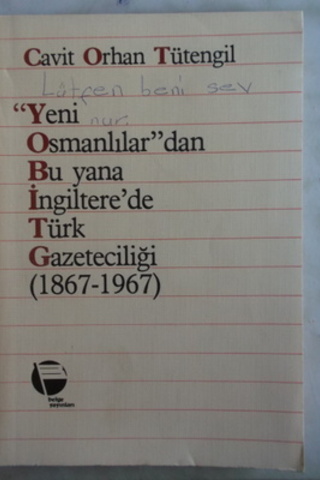 Cavit Orhan Tütengil
Lütfen beni sev
"Yeni
nur
Osmanlılar"dan
Bu yana
İngiltere'de
Türk
Gazeteciliği
(1867-1967)
belge
yayınları